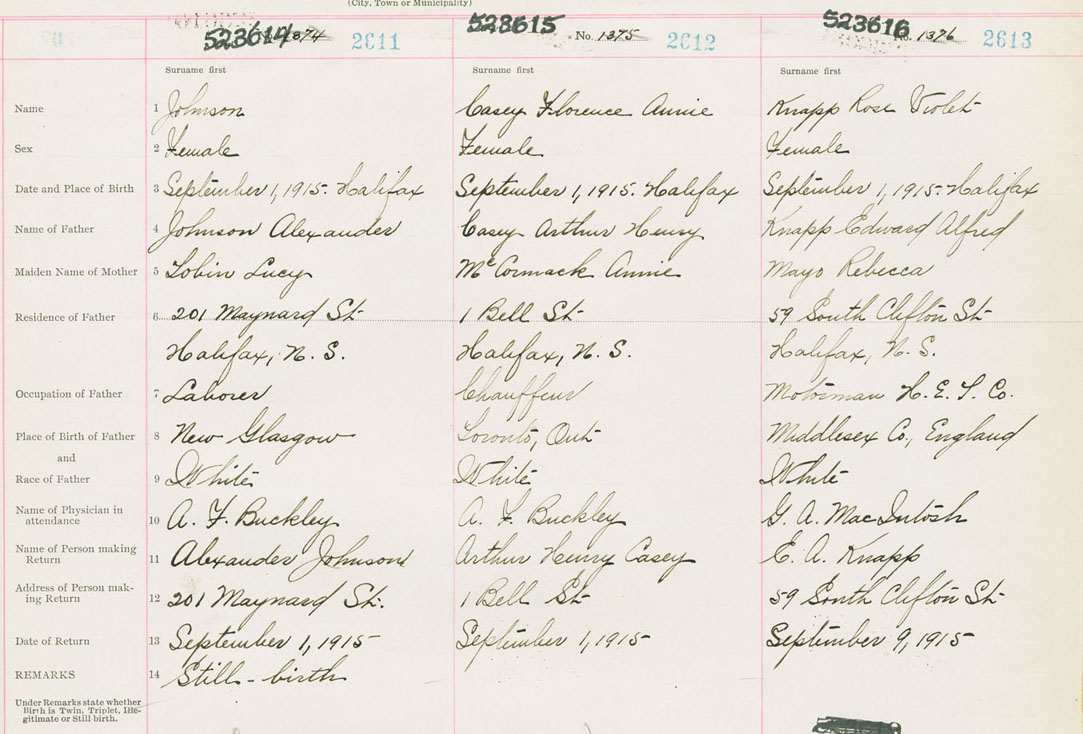 (City, Town or Municipality)
523614 1374 2611 523615 No. 1375 2612 523616 No. 1376 2613
Surname first Surname first Surname first
Name 1 Johnson Casey Florence Annie Knapp Rose Violet
Sex 2 Female Female Female
Date and Place of Birth 3 September 1, 1915. Halifax September 1, 1915. Halifax September 1, 1915. Halifax
Name of Father 4 Johnson Alexander Casey Arthur Henry Knapp Edward Alfred
Maiden Name of Mother 5 Tobin Lucy McCormack Annie Mayo Rebecca
Residence of Father 6 201 Maynard St. 1 Bell St. 59 South Clifton St.
Halifax, N. S. Halifax, N. S. Halifax, N. S.
Occupation of Father 7 Laborer Chauffeur Motorman H. E. T. Co.
Place of Birth of Father 8 New Glasgow Toronto, Ont. Middlesex Co., England
and
Race of Father 9 White White White
Name of Physician in
attendance 10 A. F. Buckley A. F. Buckley G. A. MacIntosh
Name of Person making
Return 11 Alexander Johnson Arthur Henry Casey E. A. Knapp
Address of Person mak-
ing Return 12 201 Maynard St. 1 Bell St. 59 South Clifton St.
Date of Return 13 September 1, 1915 September 1, 1915 September 9, 1915
REMARKS 14 Still-birth
Under Remarks state whether
Birth is Twin, Triplet, Ille-
gitimate or Still birth.